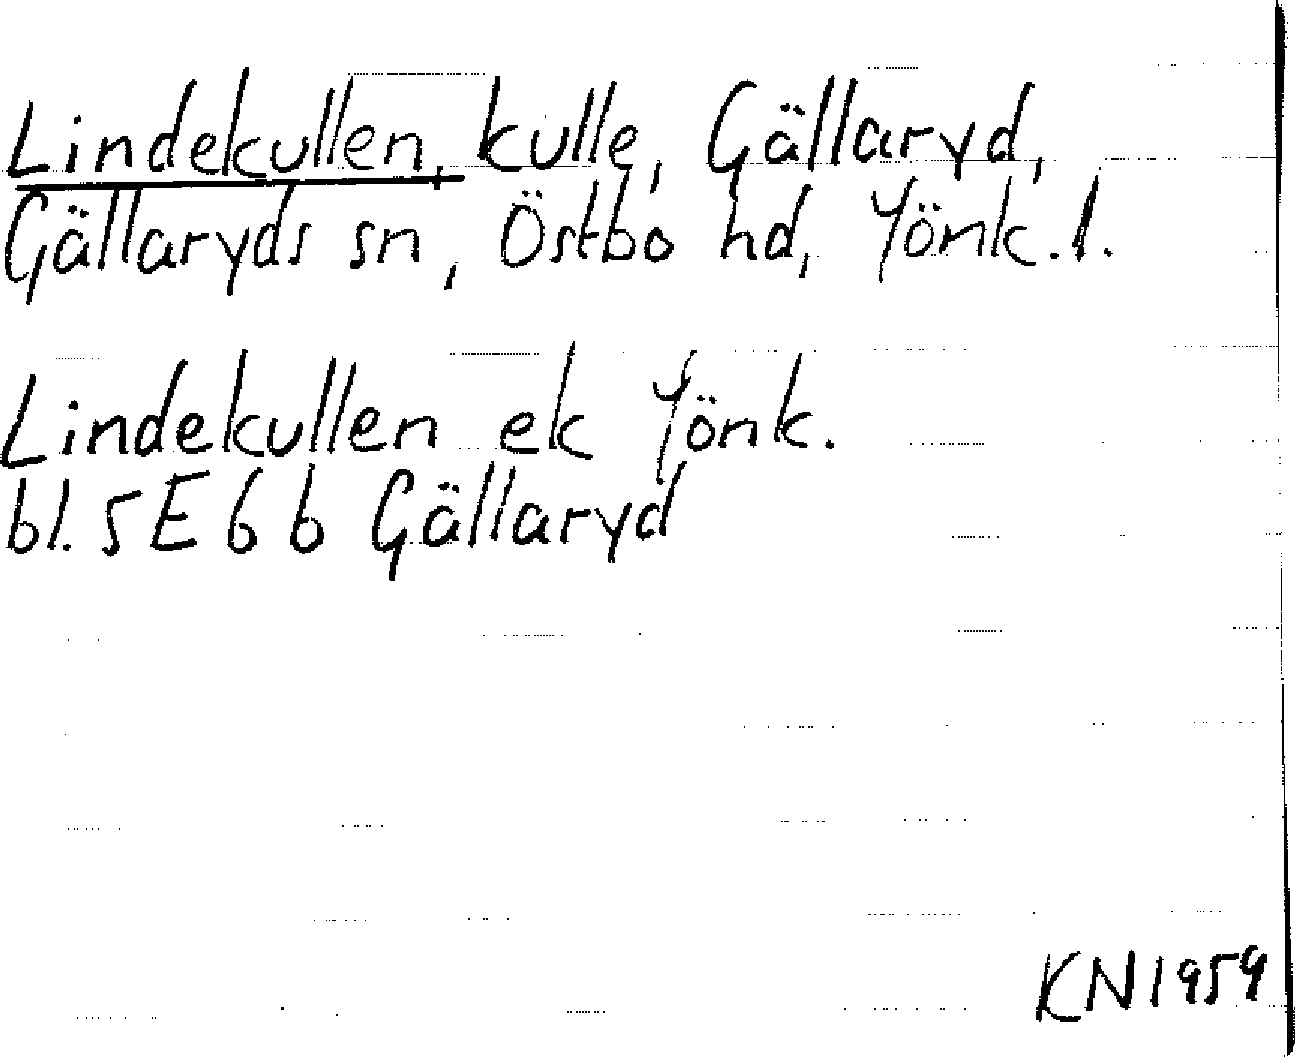 Lindekullen, kulle, Gällaryd,
Gällaryds sn, Östbo hd, Jönk. l.
Lindekullen ek Jönk.
bl. 5E 6 b Gällaryd
KN 1959